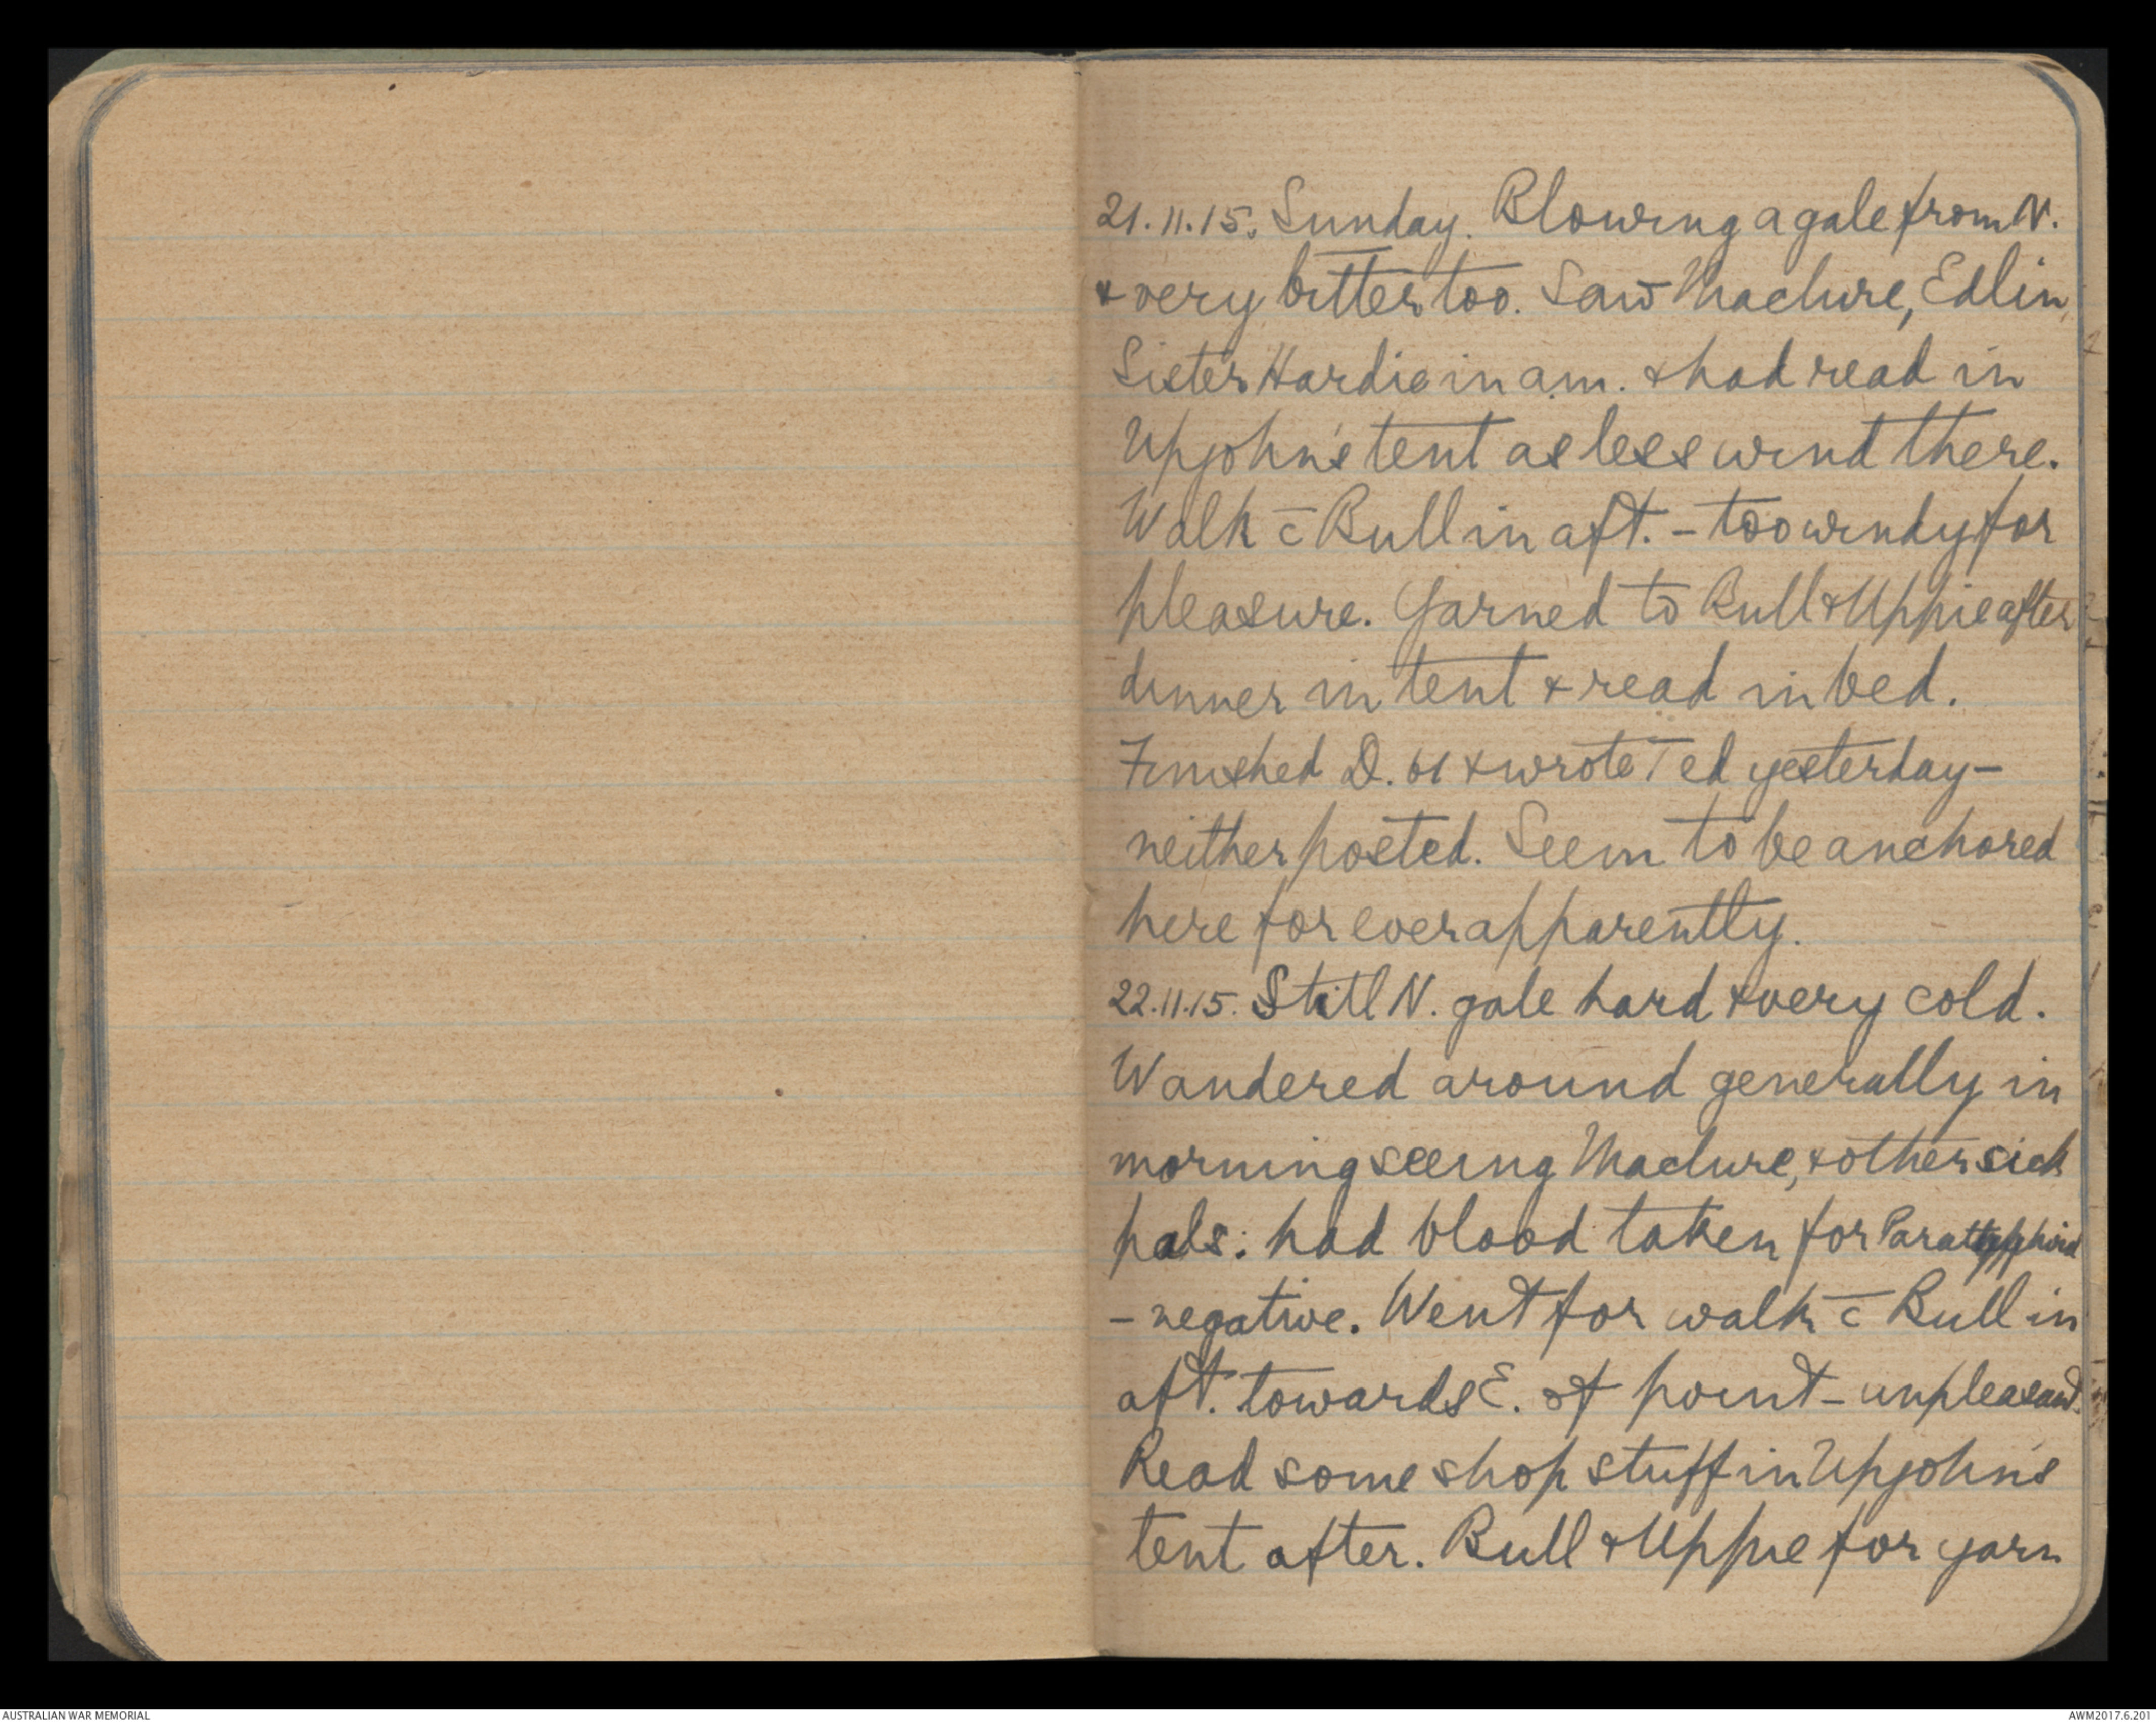 21.11.15. Sunday. Blowing a gale from N.
& very bitter too. Saw Maclure, Edlin,
Sister Hardie in a.m. & had read in
Upjohn's tent as less wind there.
Walk c̄ Bull in aft. - too windy for
pleasure. Yarned to Bull & Uppie after
dinner in tent & read in bed.
Finished D. 61 & wrote Ted yesterday -
neither posted. Seem to be anchored
here for ever apparently.
22.11.15. Still N. gale hard & very cold.
Wandered around generally in
morning seeing Maclure, & other sick
pals: had blood taken for Paratyphoid
- negative. Went for walk c̄ Bull in
aft. towards E. of point - unpleasant.
Read some shop stuff in Upjohn's
tent after. Bull & Uppie for yarn
AUSTRALIAN WAR MEMORIAL
AWM2017.6.201